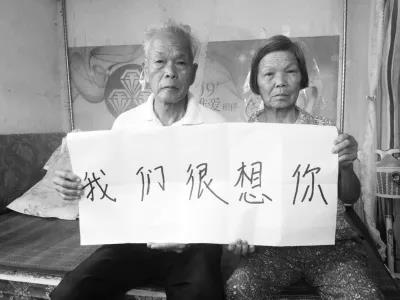 我们很想你